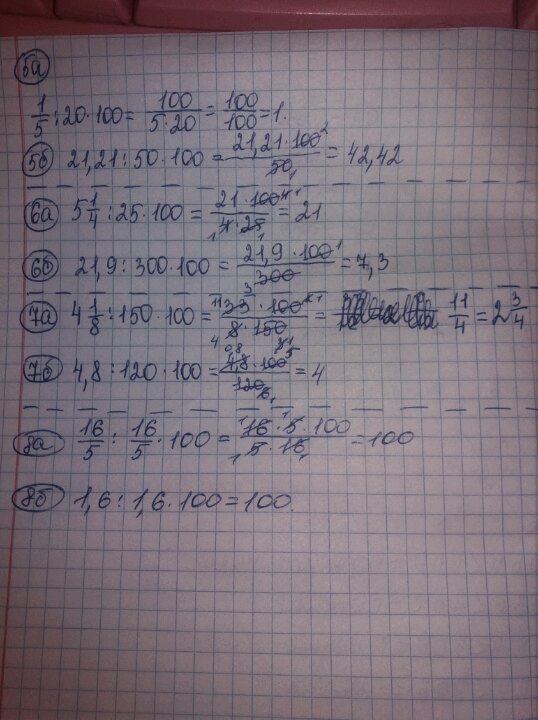 5а
1/5 : 20 · 100 = 100/(5 · 20) = 100/100 = 1.
5б 21,21 : 50 · 100 = (21,21 · 100 2)/(50 1) = 42,42
6а 5 1/4 : 25 · 100 = (21 · 100 4 1)/(1 4 · 25 1) = 21
6б 21,9 : 300 · 100 = (21,9 · 100 1)/(3 300) = 7,3
7а 4 1/8 : 150 · 100 = (11 33 · 100 2 1)/(4 8 · 150) = 11/4 = 2 3/4
7б 4,8 : 120 · 100 = (0,8 4,8 · 100 5)/(120 6 1) = 4
8а 16/5 : 16/5 · 100 = (1 16 · 1 5 · 100)/(1 5 · 16 1) = 100
8б 1,6 : 1,6 · 100 = 100.